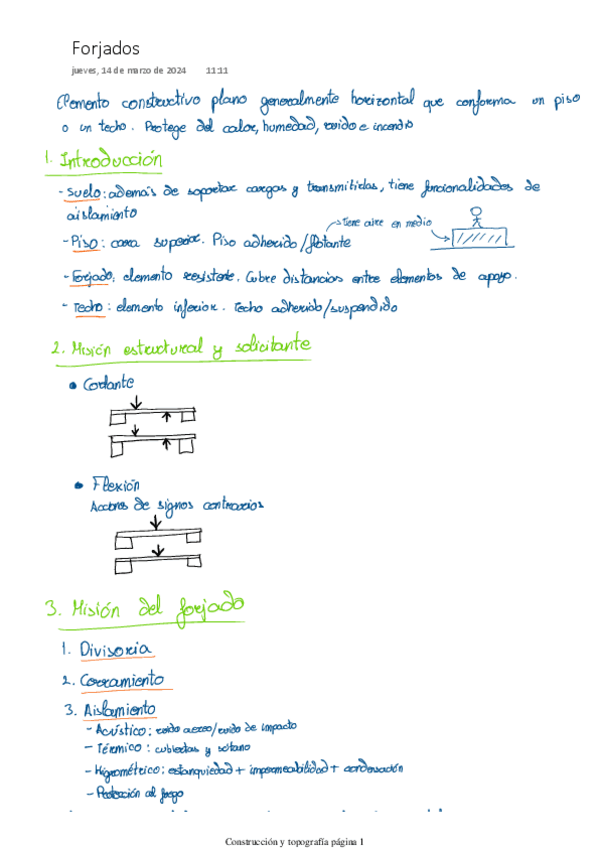 Forjados
jueves, 14 de marzo de 2024 11:11
Elemento constructivo plano generalmente horizontal que conforma un piso
o un techo. Protege del calor, humedad, ruido e incendio
1. Introducción
- Suelo: además de soportar cargas y transmitirlas, tiene funcionalidades de
aislamiento
→ tiene aire en medio
- Piso: cara superior. Piso adherido/flotante
- Forjado: elemento resistente. Cubre distancias entre elementos de apoyo.
- Techo: elemento inferior. Techo adherido/suspendido
2. Misión estructural y solicitante
• Cortante
• Flexión
Acciones de signos contrarios
3. Misión del forjado
1. Divisoria
2. Cerramiento
3. Aislamiento
- Acústico: ruido aereo/ruido de impacto
- Térmico: cubiertas y sótano
- Higrométrico: estanquiedad + impermeabilidad + condensación
- Protección al fuego
Construcción y topografía página 1